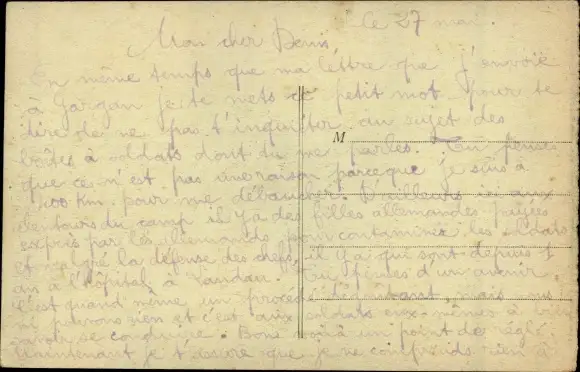 le 27 mai.
Mon cher Denis,
En même temps que ma lettre que j'envoie
à Gargan je te mets ce petit mot pour te
dire de ne pas t'inquiéter au sujet des
boîtes à soldats dont tu me parles. Tu penses
M
que ce n'est pas une raison parce que je suis à
100 km. pour me débaucher. D'ailleurs ici aux
alentours du camp il y a des filles allemandes payées
exprès par les allemands pour contaminer les soldats
et malgré la défense des chefs, il y a qui sont depuis 1
an à l'hôpital à Landau. Tu d'un avenir.
C'est quand même un procédé dégoûtant, mais
ni pouvons rien et c'est aux soldats eux-mêmes à
savoir se conduire. Bon voilà un point de réglé.
Maintenant je t'assure que je ne comprends rien à